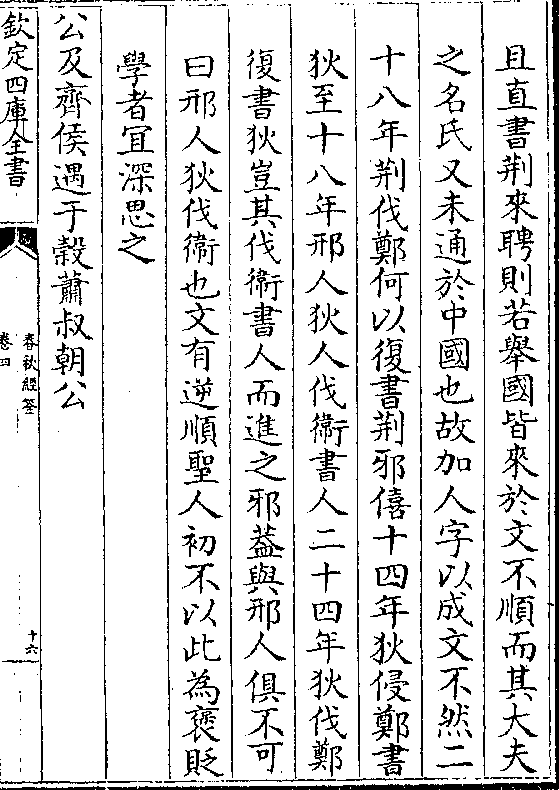 且直書荆來聘則若舉國皆來於文不順而其大夫
之名氏又未通於中國也故加人字以成文不然二
十八年荆伐鄭何以復書荆邪僖十四年狄侵鄭書
狄至十八年邢人狄人伐衞書人二十四年狄伐鄭
復書狄豈其伐衞書人而進之邪葢與邢人俱不可
曰邢人狄伐衞也文有逆順聖人初不以此為褒貶
學者宜深思之
公及齊侯遇于榖蕭叔朝公
欽定四庫全書
春秋經筌
卷四
十六